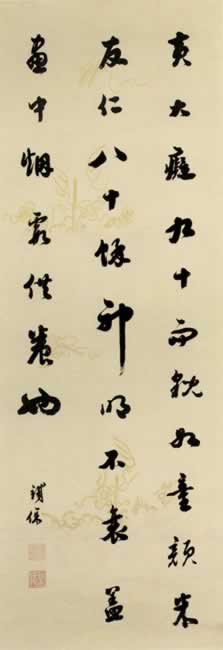 黃大癡九十而貌如童顏米
友仁八十餘神明不衰蓋
畫中烟霞供養也
鐵保